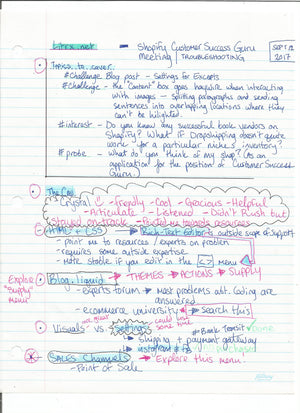 Litrx.net - Shopify Customer Success Guru
Meeting / TROUBLESHOOTING
SEPT 12
2017
Topics to cover:
#Challenge Blog post - Settings for Excerpts
#Challenge - the "Content" box goes haywire when interacting
with images - splitting paragraphs and sending
sentences into overlapping locations where they
can't be
#interest - Do you know any successful book vendors on
Shopify? What if Dropshipping doesn't quite
work for a particular niche's inventory?
#probe - what do you think of my shop? (As an
application for the position of Customer Success
Guru)
The Call
Crystal C - Friendly - Cool - Gracious - Helpful
- Articulate - Listened - Didn't Rush but
Stayed on-track - towards resources
HTML + CSS → Rich-Text Editor is outside scope of Support
- point me to resources / experts on problem
- requires some outside expertise.
- More stable if you edit in the <> menu
Explore
"Supply"
menu
Blog.liquid → THEMES → ACTIONS → SUPPLY
- experts forum → most problems abt. Coding are
answered
- ecommerce university → search this
Visuals vs. Settings could use
some time #Book Transit Done
→ shipping + payment gateway
→ instagram + FB
SALES Channels → Explore this menu!
- Point of Sale